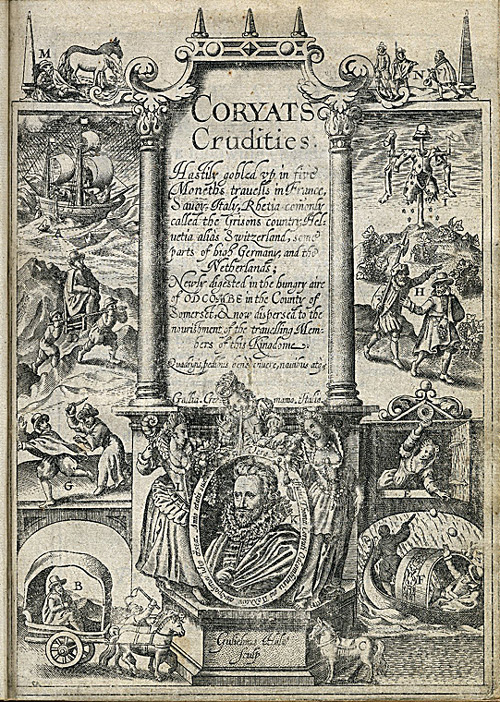 M
N
CORYATS
Crudities.
Hastily gobled vp in five
Moneths trauells in France,
Sauoy, Italy, Rhetia comonly
called the Grisons country, Hel-
uetia aliàs Switzerland, some
parts of high Germany, and the
Netherlands;
Newly digested in the hungry aire
of ODCOMBE in the County of
Somerset, & now dispersed to the
nourishment of the trauelling Mem-
bers of this Kingdome.
H
G
B
F
Gulielmus Hole
sculp